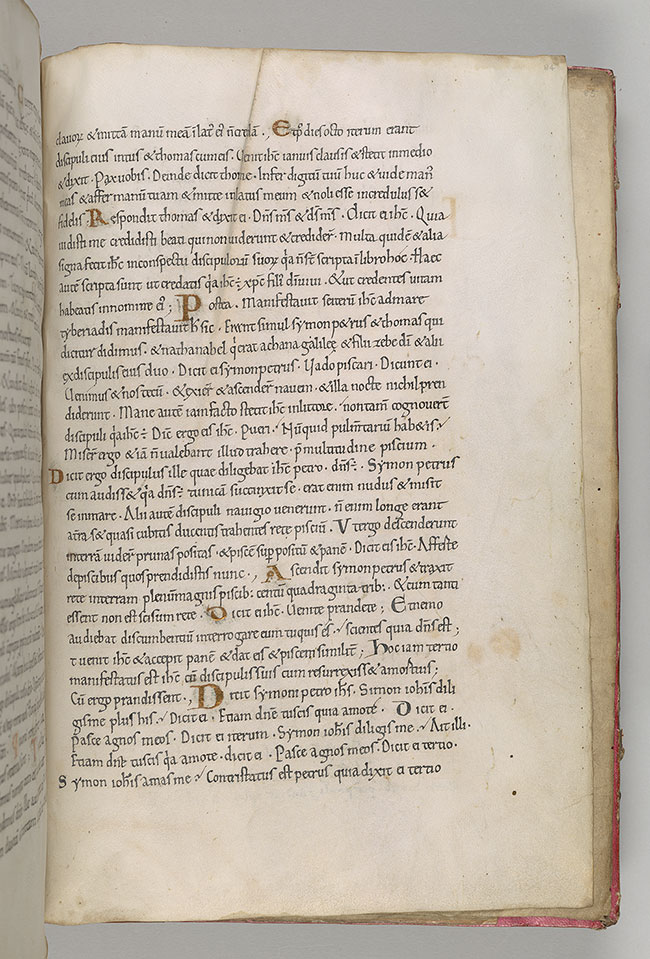 clauorꝝ & mittā manū meā ī lat᾽ ei᾽ ñ crēdā . , Et p᾽ dies octo iterum erant
discipuli eius intus & thomas cum eis. Uenit ihc ianuis clausis & stetit in medio
& dixit . Pax uobis . Deinde dicit thome . Infer digitū tuū huc & uide man᾽
meas & affer manū tuam & mitte in latus meum & noli esse incredulus s&
fidelis . Respondit thomas & dixit ei . Dn̄s m̄s & d̄s m̄s . Dicit ei ihc . Quia
uidisti me credidisti beati qui non uiderunt & crediđer᾽ . Multa quidē & alia
signa fecit ihc in conspectu discipulorū suorꝝ q̄ ñ s̄t scripta in libro hoc . Haec
autē scripta sunt ut credatis q̄a ihc ÷ xp̄c fili᾽ dī uiui . & ut credentes uitam
habeatis in nomine ei᾽ ; Postea . Manifestauit se iterū ihc ad mare
tyberiadis manifestauit h᾽ sic . Erant simul symon petrus & thomas qui
dicitur didimus . & nathanahel q᾽ erat a chana galileę & filii zebedei & alii
ex discipulis eius duo . Dicit ei symon petrus . Uado piscari . Dicunt ei .
Uenimus & nos tecū . & exier᾽ & ascender᾽ nauem . & illa nocte nichil pren
diderunt . Mane autē iam facto stetit ihc in littore . non tam̄ cognouert̄
discipuli q̄a ihc ÷ Dic̄ ergo eis ihc . Pueri . Nūquid pulmtariū hab&is .
Miser᾽ ergo & iā ñ ualebant illud trahere . p̄ multitudine piscium .
Dicit ergo discipulus ille quae diligebat ihc petro . dn̄s ÷ . Symon petrus
cum audiss& q̄a dn̄s ÷ tunicā succinxit se . erat enim nudus & misit
se in mare . Alii autē discipuli nauigio uenerunt . ñ enim longe erant
a tr̄a s& quasi cubitis ducentis trahentes rete pisciū . Ut ergo descenderunt
in terrā uider᾽ prunas positas . & piscē sup positū & panē . Dicit eis ihc . Afferte
de piscibus quos prendidistis nunc . , Ascendit symon petrus & traxit
rete in terram plenū magnis piscib; centū quadraginta trib; . & cum tanti
essent non est scisum rete . Dicit ei ihc . Uenite prandete ; Et nemo
audebat discumbentiū interrogare eum tu quis es . scientes quia dn̄s est ;
& uenit ihc & accepit panē & dat eis & piscem similit᾽ ; Hoc iam tertio
manifestatus est ihc cū discipulis suis cum resurrexiss& a mortuis ;
Cū ergo prandissent . , Dicit symoni petro ihs . Simon iohis dili
gis me plus his . Dicit ei . Etiam dn̄e tu scis quia amo te . Dicit ei .
Pasce agnos meos . Dicit ei iterum . Symon iohis diligis me . Ait illi .
Etiam dn̄e tu scis q̄a amo te . dicit ei . Pasce agnos meos . Dicit ei tertio .
Symon iohis amas me . Contristatus est petrus quia dixit ei tertio